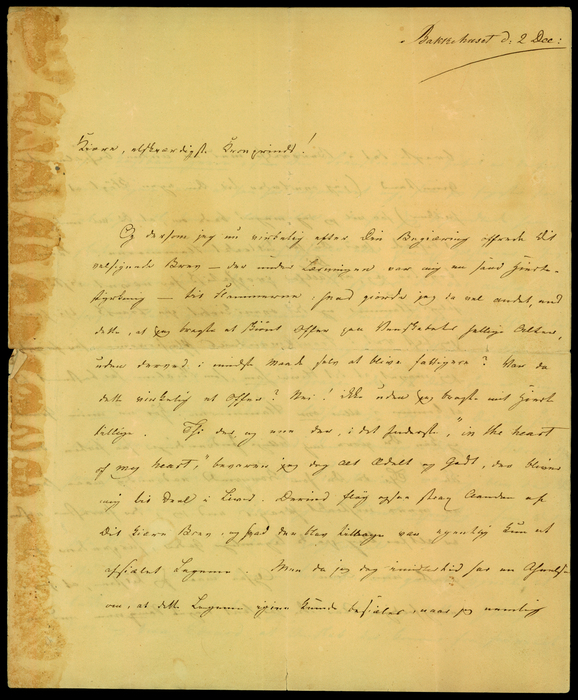 Bakkehuset d: 2 Dec:
Kiære, elskværdigste Kronprinds!
Og dersom jeg nu virkelig efter Din Begiæring offrede dit
velsignede Brev — der under Læsningen var mig en sand Hierte-
styrkning — til Flammerne, hvad giorde jeg da vel andet, end
dette, at jeg bragte et skiönt Offer paa Venskabets hellige Altar,
uden derved i mindste Maade selv at blive fattigere? Var da
dette virkelig et Offer? Nei! ikke uden jeg bragte mit Hierte
tillige. Thi der og kun der, i det Inderste, "in the heart
of my heart," bevarer jeg dog alt Ædelt og Godt, der bliver
mig til Deel i Livet. Derind fløy ogsaa strax Aanden af
Dit kiære Brev, og hvad der blev tilbage var egentlig kun et
afsiælet Legeme. Men da jeg dog imidlertid har en Ahnelse
om, at dette Legeme igien kunde besiæles, naar jeg nemlig